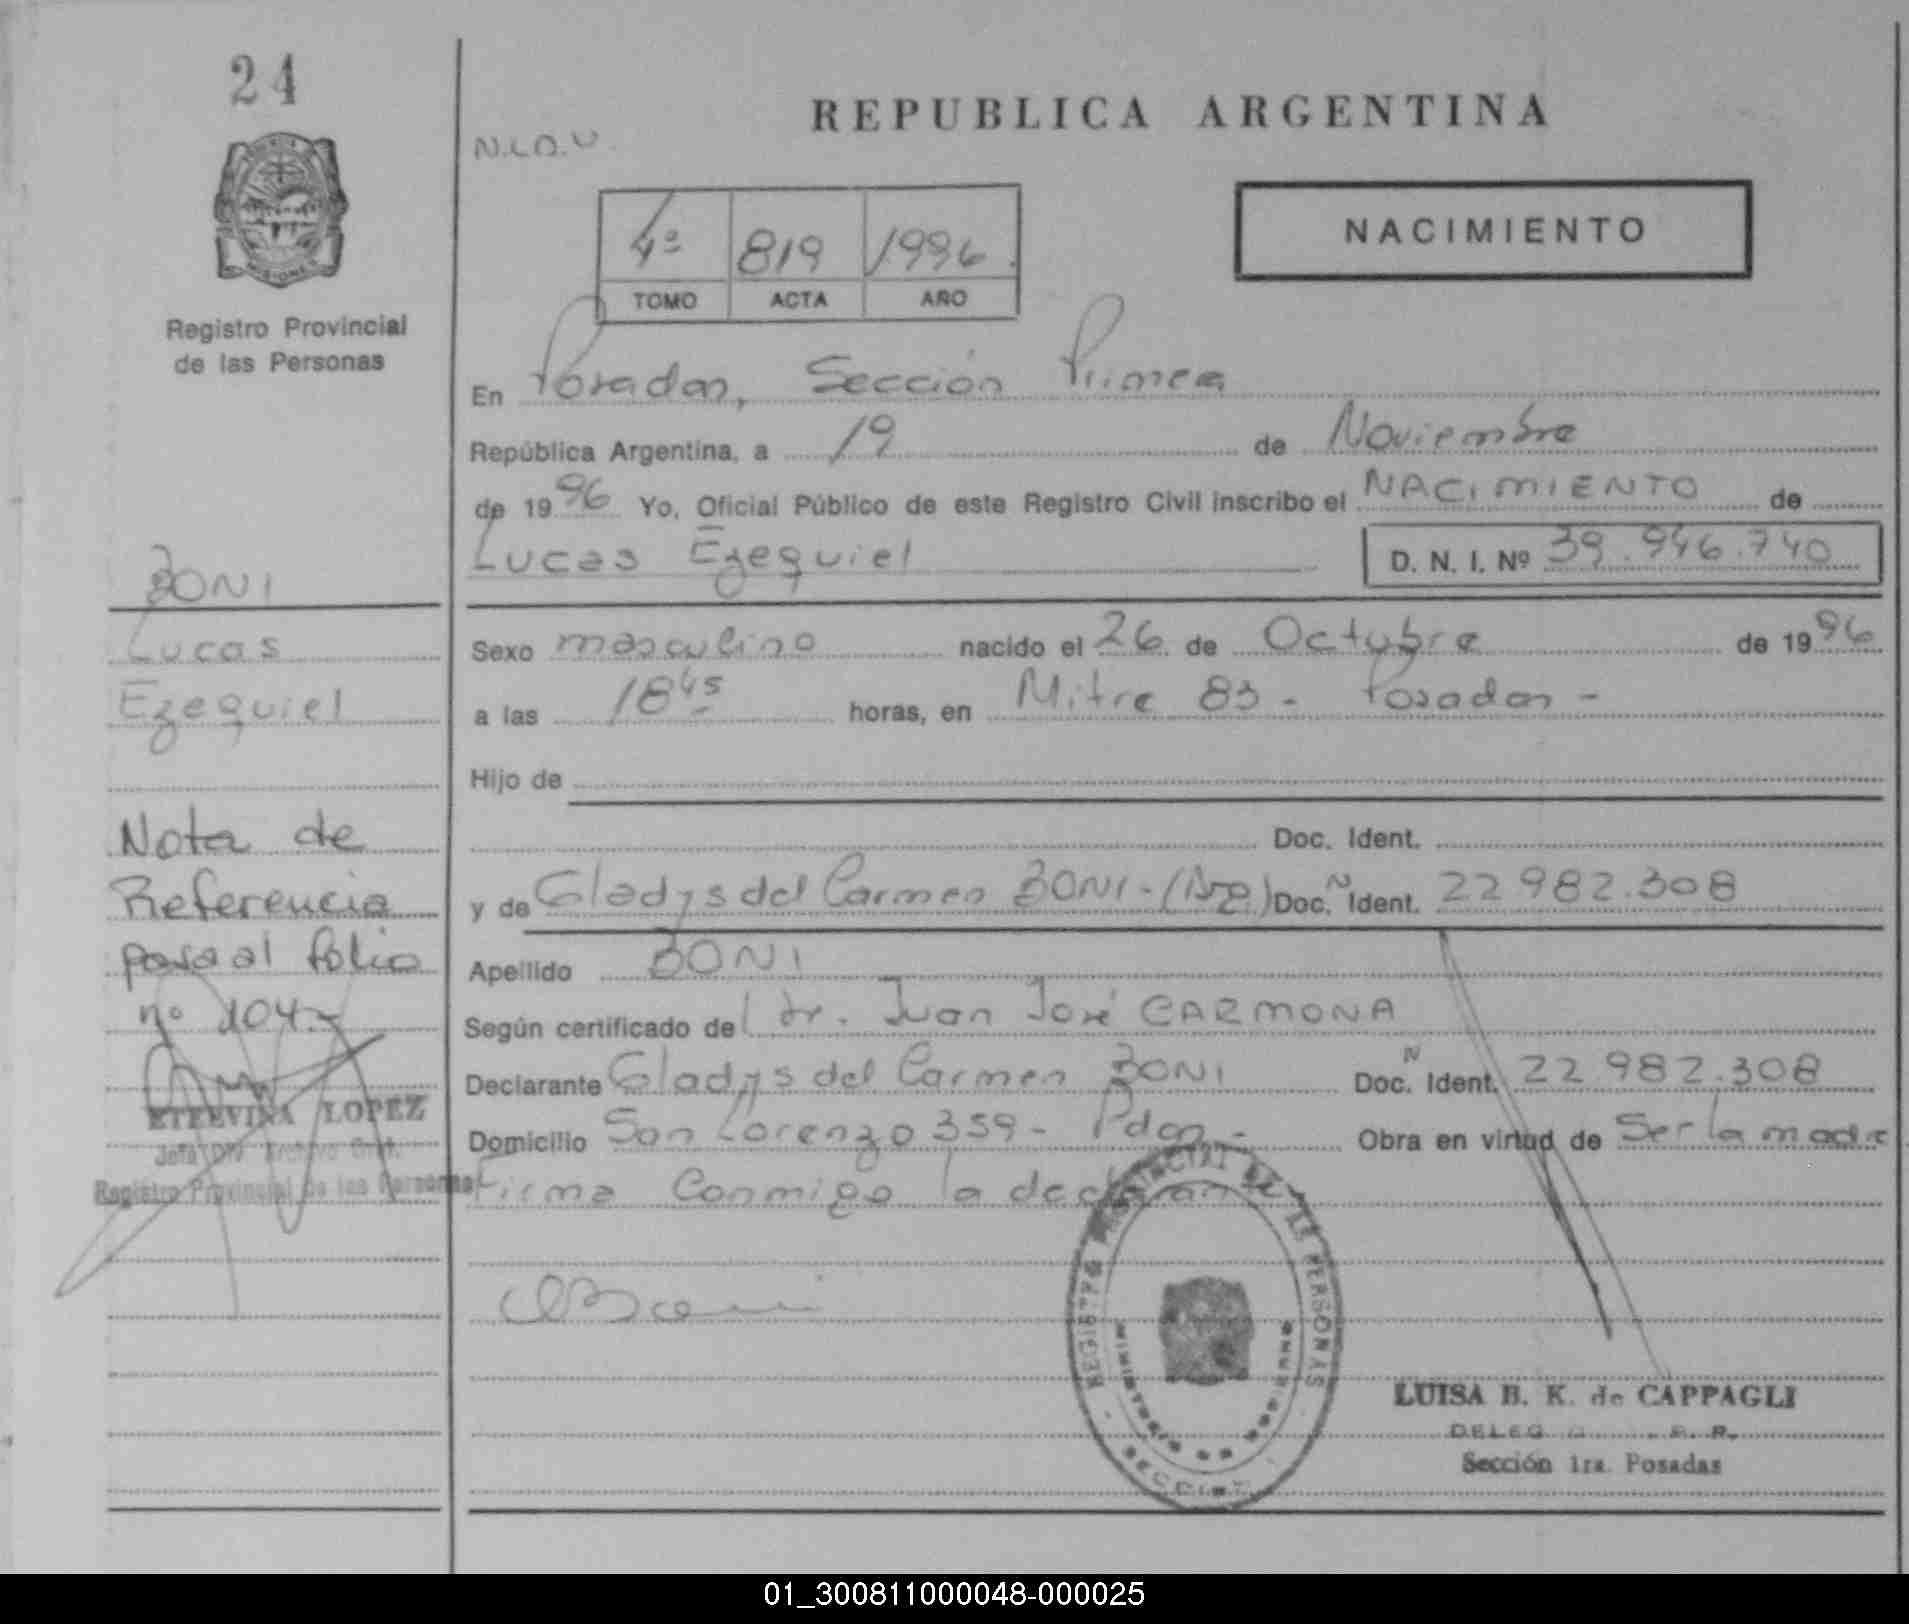 24
MISIONES
Registro Provincial
de las Personas
N.L.O.V.
REPUBLICA ARGENTINA
4º 819 1996.
TOMO ACTA AÑO
NACIMIENTO
En Posadas, Sección Primera
República Argentina, a 19 de Noviembre
de 1996 Yo, Oficial Público de este Registro Civil inscribo el NACIMIENTO de
Lucas Ezequiel D. N. I. Nº 39.946.740
BONI
Lucas
Ezequiel
Sexo masculino nacido el 26 de Octubre de 1996
a las 18 45 horas, en Mitre 83 - Posadas -
Hijo de
Doc. Ident.
y de Gladys del Carmen BONI - (Arg.) Doc. N Ident. 22 982.308
Apellido BONI
Según certificado del dr. Juan José CARMONA
Declarante Gladys del Carmen BONI Doc. N Ident. 22 982.308
Domicilio San Lorenzo 359 - Pdas - Obra en virtud de Ser la madre
Firma Conmigo la declarante
Nota de
Referencia
pasa al folio
nº 104.-
ETELVINA LOPEZ
Jefa Div. Archivo Gral.
Registro Provincial de las Personas
REGISTRO PROVINCIAL DE LAS PERSONAS
MINISTERIO DE GOBIERNO
SECCION
LUISA B. K. de CAPPAGLI
Sección 1ra. Posadas
01_300811000048-000025